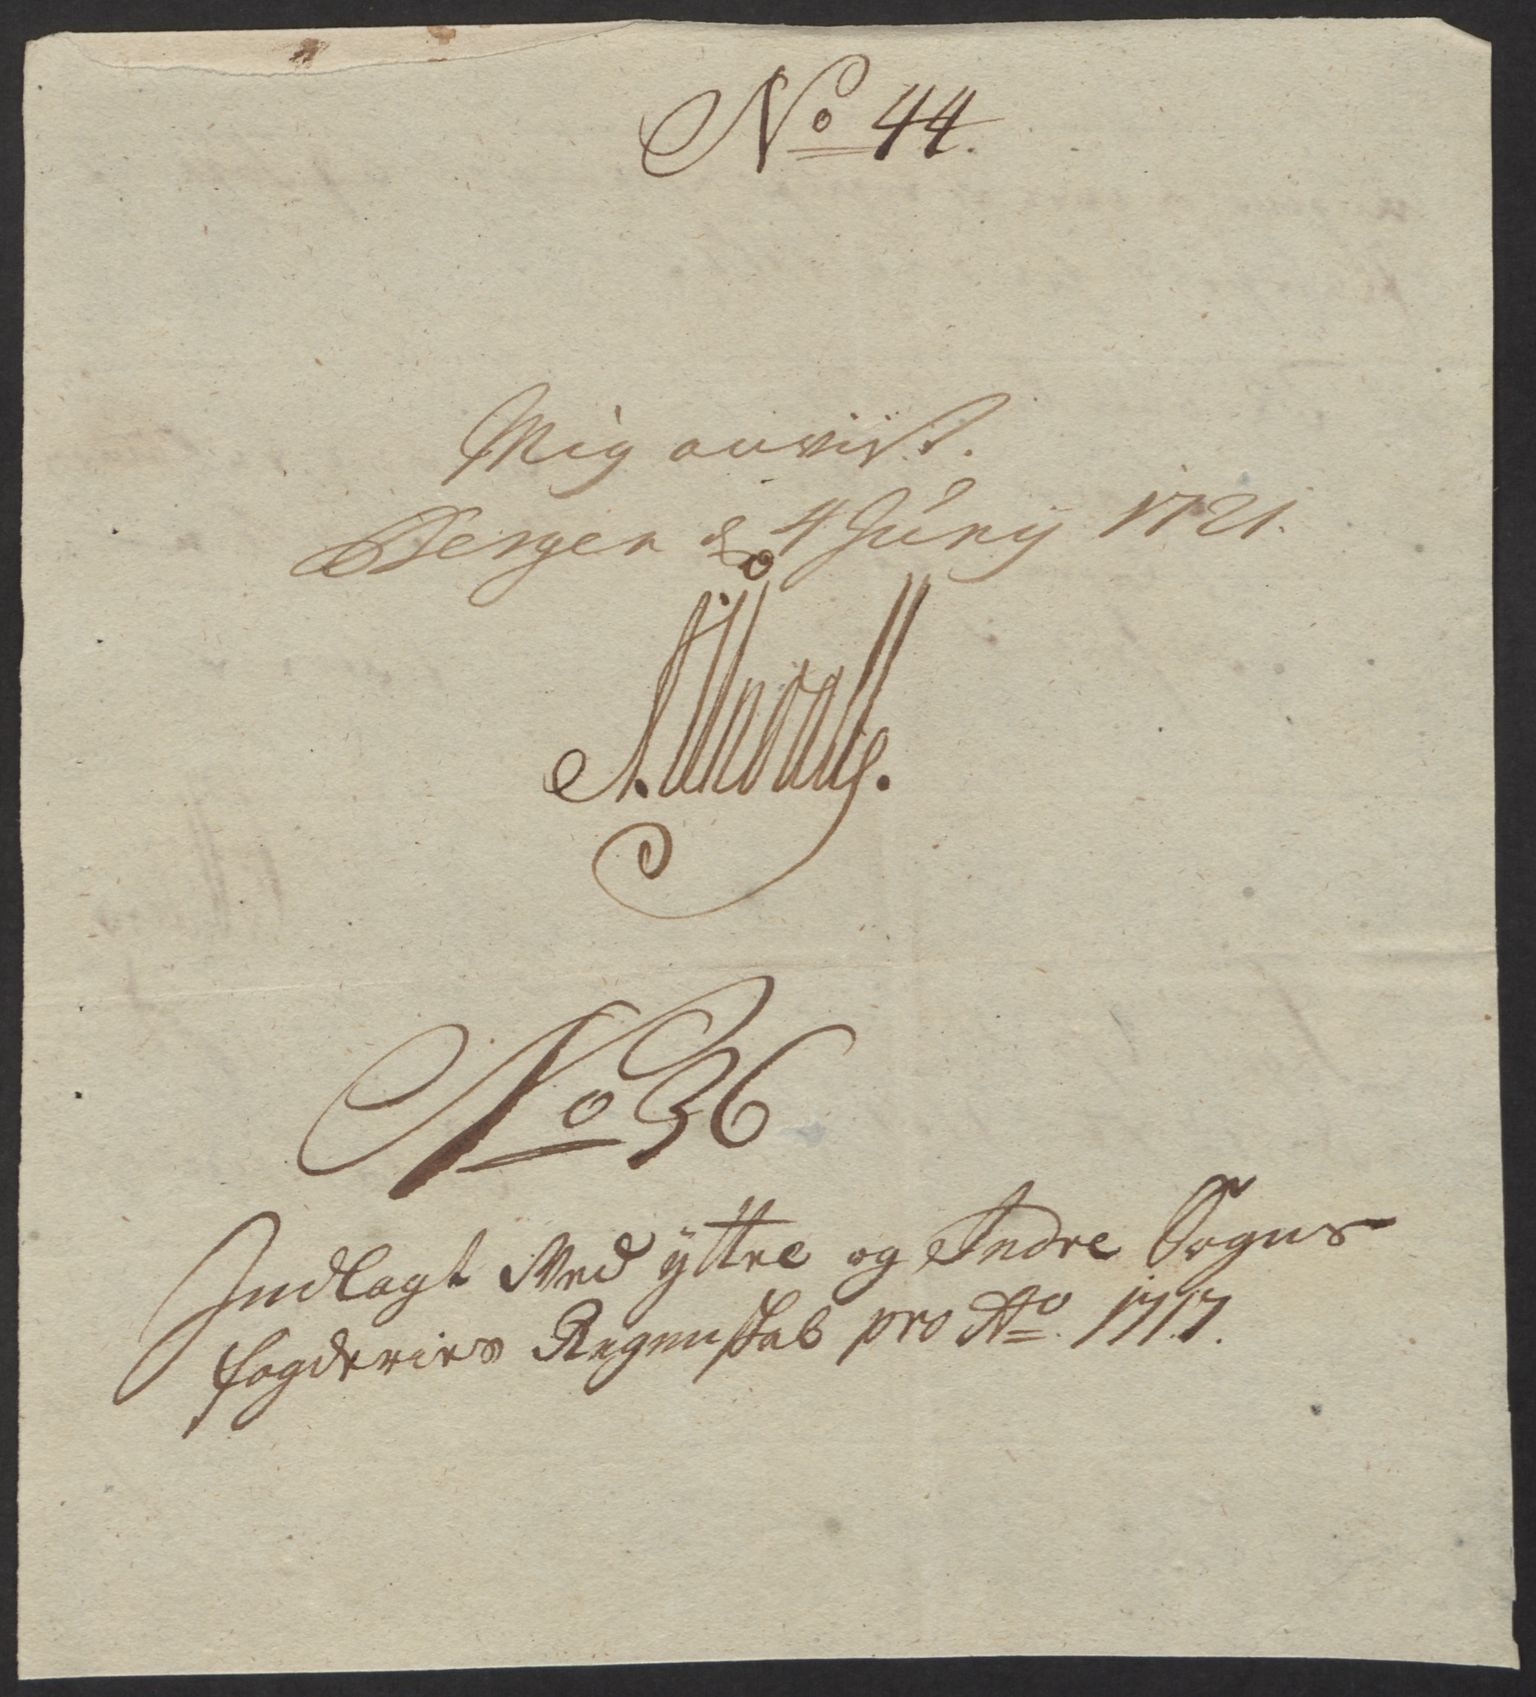 No 44.
Mig anvist.
Bergen d 4 Junij 1721.
No 36
Indlagt Med yttre og Indre Sogns
fogderies Regenskab pro Ao. 1717.